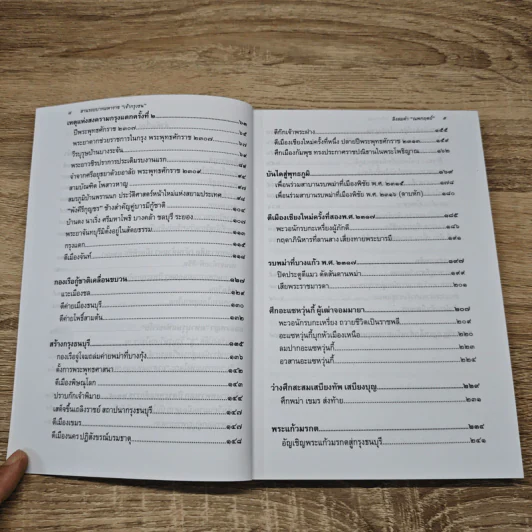 ๘ สามรอยบาทมหาราช "เจ้ากรุงธน"
เหตุแห่งสงครามกรุงแตกครั้งที่ ๒
ปีพระพุทธศักราช ๒๓๐๗
พระยาตากช่วยราชการในกรุง พระพุทธศักราช ๒๓๐๗
วีรบุรุษบ้านบางระจัน
พระอาวชิรปราการประเดิมรบงานแรก
จำจากศรีอยุธยาด้วยอาลัย พระพุทธศักราช ๒๓๐๙
สามบัณฑิต โพสาวหาญ
สมรภูมิบ้านพรานนก ประวัติศาสตร์หน้าใหม่แห่งสยามประเทศ
"พังคีรีกุญชร" ช้างสำคัญคู่บารมีกู้ชาติ
บ้านดง นาเริ่ง ศรีมหาโพธิ บางคล้า ชลบุรี ระยอง ๑๐๗
พระยาจันทบุรีมิตั้งอยู่ในสัตยธรรม
กรุงแตก
ตีเมืองจันท์ ๑๑๘
กองเรือกู้ชาติเคลื่อนขบวน ๑๒๗
แวะเมืองชล ๑๒๙
ตีค่ายเมืองธนบุรี ๑๓๐
ตีค่ายโพธิ์สามต้น ๑๓๒
สร้างกรุงธนบุรี ๑๓๕
กองเรือจู่โจมถล่มค่ายพม่าที่บางกุ้ง ๑๓๖
ตั้งการพระพุทธศาสนา ๑๔๒
ตีเมืองพิษณุโลก ๑๔๓
ปราบก๊กเจ้าพิมาย ๑๔๔
เสด็จขึ้นเถลิงราชย์ สถาปนากรุงธนบุรี ๑๔๗
ตีเมืองเขมร ๑๔๗
ตีเมืองนคร ปฏิสังขรณ์บรมธาตุ ๑๔๘
สิงหฬก๋า "นเรศวร์" ๙
ตีก๊กเจ้าพระฝาง ๑๕๕
ตีเมืองเชียงใหม่ครั้งที่หนึ่ง ปลายปีพระพุทธศักราช ๒๓๑๓
ตีศึกเมืองกัมพุช ทรงประกาศราชปณิธานในพระโพธิญาณ ๑๖๒
บันไดสู่พุทธภูมิ
เพื่อนร่วมสาบานรบพม่าที่เมืองพิชัย พ.ศ. ๒๓๑๕ ๑๗๘
เพื่อนร่วมสาบานรบพม่าที่เมืองพิชัย พ.ศ. ๒๓๑๖ (ดาบหัก) ๑๘๐
ตีเมืองเชียงใหม่ครั้งที่สองพ.ศ. ๒๓๑๗ ๑๘๕
พะวอนักรบกะเหรี่ยงผู้ภักดี ๑๘๖
กฤดาภินิหารที่ลานสาง เสี่ยงทายพระบารมี ๑๙๑
รบพม่าที่บางแก้ว พ.ศ. ๒๓๑๗ ๑๙๙
ปิดประตูตีแมว ตัดสันดานพม่า ๑๙๙
เสียพระราชมารดา ๒๐๑
ศึกอะแซหวุ่นกี้ ผู้เฒ่าจอมมายา ๒๐๗
พะวอนักรบกะเหรี่ยง ถวายชีวิตเป็นราชพลี ๒๐๙
อะแซหวุ่นกี้บุกหัวเมืองเหนือ ๒๒๐
ลมปากอะแซหวุ่นกี้ ๒๒๓
อวสานอะแซหวุ่นกี้ ๒๒๔
ว่างศึกสะสมเสบียงทัพ เสบียงบุญ ๒๒๙
ศึกพม่า เขมร ส่งท้าย ๒๓๑
พระแก้วมรกต ๒๓๔
อัญเชิญพระแก้วมรกตสู่กรุงธนบุรี ๒๔๑